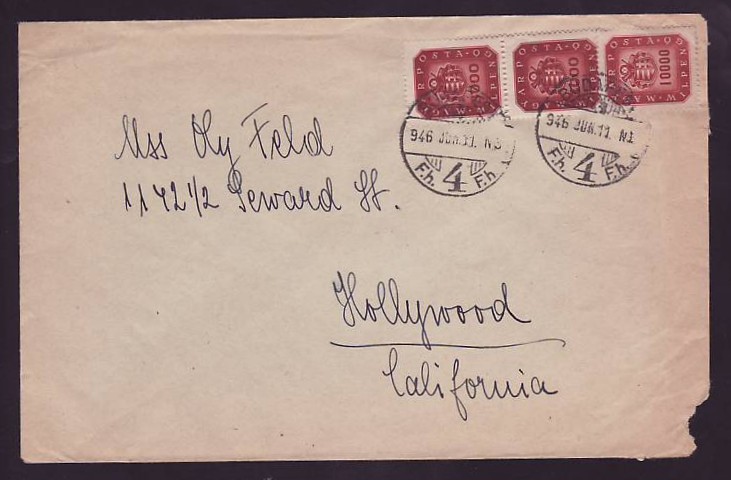 MAGYAR POSTA · 10000 MILPENGŐ
10000
946 JUN. 11. N3
F.h. 4 F.h.
946 JUN. 11. N1
F.h. 4 F.h.
Mss Oly Feld
1142 1/2 Seward St.
Hollywood
California